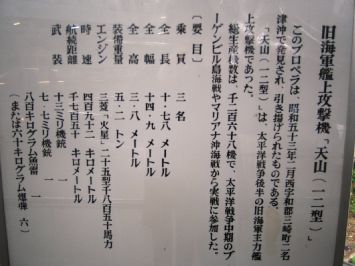 旧海軍艦上攻撃機「天山(一二型)」
このプロペラは、昭和五十三年二月西宇和郡三崎町二名
津沖で発見され、引き揚げられたものである。
「天山(一二型)」は、太平洋戦争後半の旧海軍主力艦
上攻撃機であった。
総生産機数は、千二百六十八機で、太平洋戦争中期のブ
ーゲンビル島海戦やマリアナ沖海戦から実戦に参加した。
[要目]
乗員 三名
全長 十・七八メートル
全幅 十四・九メートル
全高 三・八メートル
装備重量 五・二トン
エンジン 三菱「火星」二十五型千八百五十馬力
時速 四百九十二キロメートル
航続距離 千七百五十キロメートル
武装 十三ミリ機銃 一
七・七ミリ機銃 一
八百キログラム魚雷 一
(または六十キログラム爆弾 六)